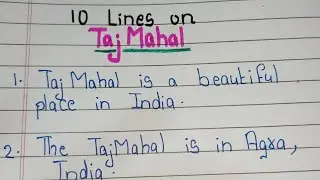 10 Lines on
Taj Mahal
1. Taj Mahal is a beautiful
place in India.
2. The TajMahal is in Agra,
India.